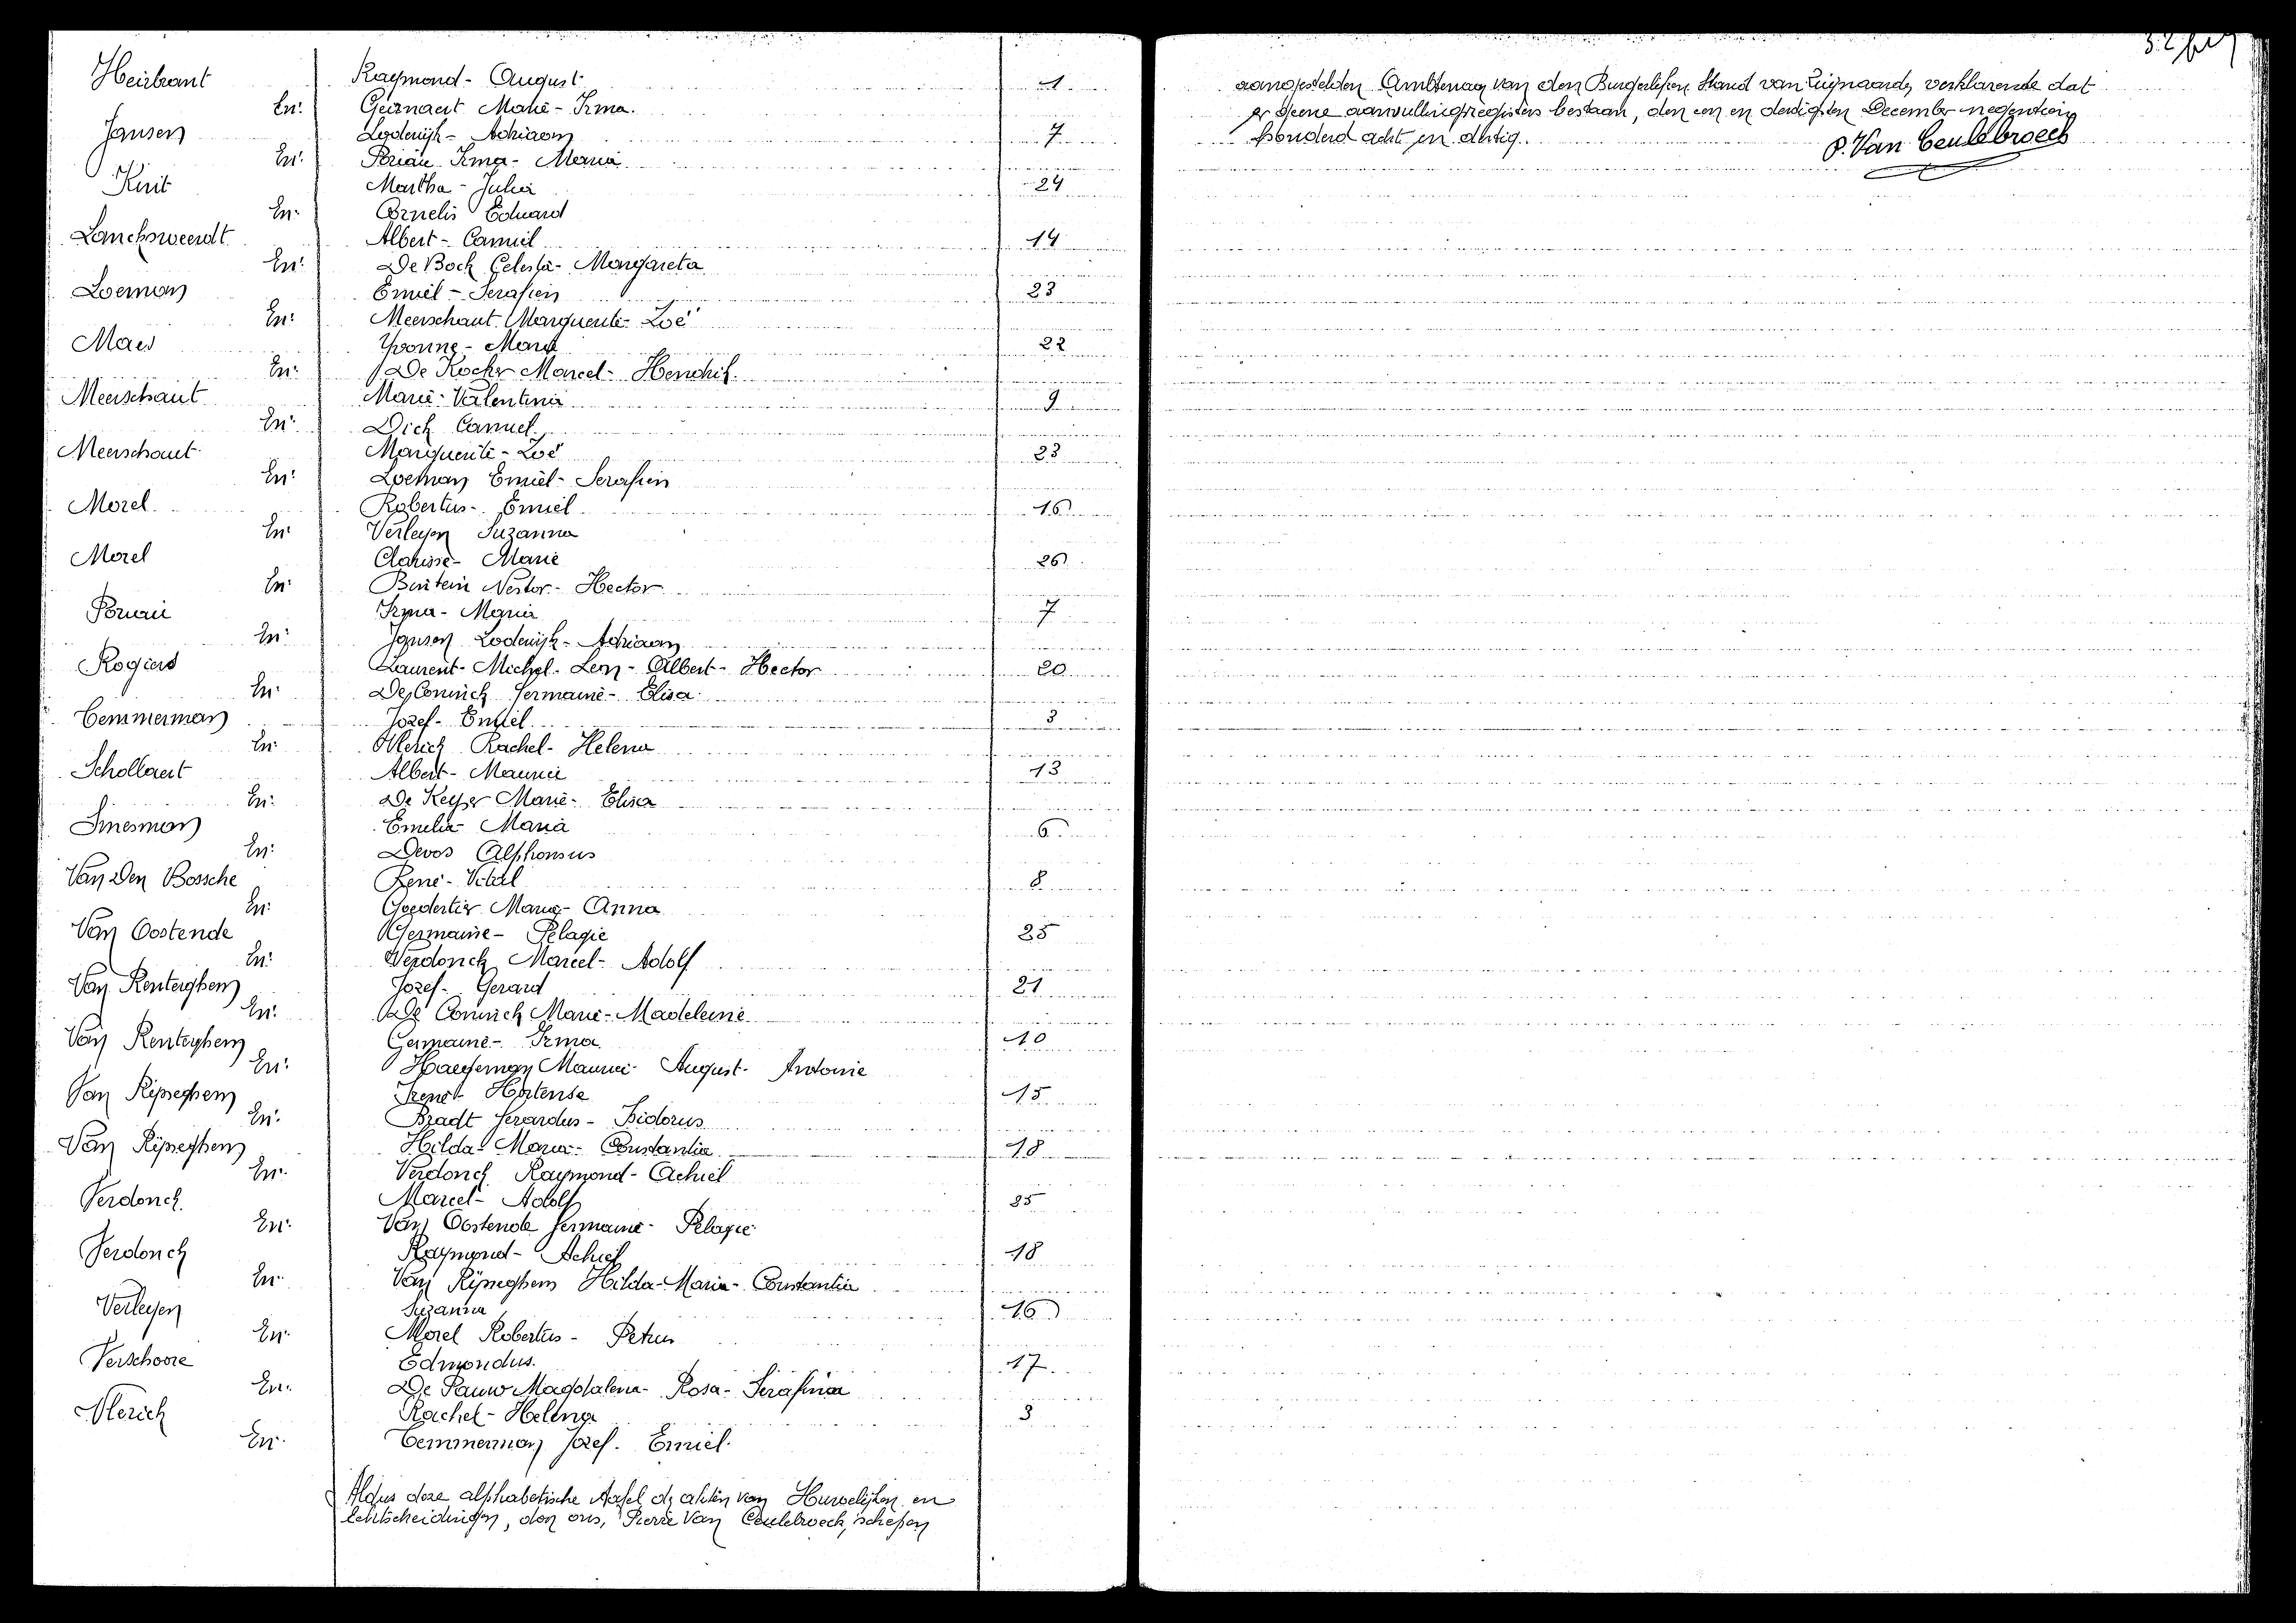 Heirbrant Raymond - August 1
En: Geirnaert Marie - Irma.
Jansen Lodewijk - Adriaan 7
En: Irma - Maria
Martha - Julia 24
En: Cornelis Eduard
Lancksweerdt Albert - Camiel 14
En: De Bock Celesta - Margareta
Loeman Emiel - Serafien 23
En: Meerschaut Marguerite - Zoë
Maes Yvonne - Maria 22
En: De Kocker Marcel - Hendrik.
Meerschaut Marie - Valentina 9
En: Dick Camiel.
Meerschaut Marguerite - Zoë 23
En: Loeman Emiel - Serafien
Morel Robertus - Emiel 16
En: Verleyen Suzanna
Morel Clarisse - Marie 26
En: Buntein Nestor - Hector
Irma - Maria 7
En: Jansen Lodewijk - Adriaan
Rogiers Laurent - Michel - Leon - Albert - Hector 20
En: De Coninck Germaine - Elisa
Temmerman Jozef - Emiel 3
En: Vlerick Rachel - Helena
Schollaert Albert - Maurice 13
En: De Keyser Marie - Elisa
Sinesman Emelia - Maria 6
En: Devos Alphonsus
Van Den Bossche René - Vital 8
En: Goedertier Maria - Anna
Van Oostende Germaine - Pelagie 25
En: Verdonck Marcel - Adolf
Van Renterghem Jozef - Gerard 21
En: De Coninck Marie - Madeleine
Van Renterghem Germaine - Irma 10
En: Haegeman Maurice - August - Antonie
Van Rijseghem Irené - Hortense 15
En: Bradt Gerardus - Isidorus
Van Rijseghem Hilda - Maria - Constantia 18
En: Verdonck Raymond - Achiel
Verdonck Marcel - Adolf 25
En: Van Oostende Germaine - Pelagie
Verdonck Raymond - Achiel 18
En: Van Rijseghem Hilda - Maria - Constantia
Verleyen Suzanna 16
En: Morel Robertus - Petrus
Verschoore Edmondus. 17
En: De Pauw Magdalena - Rosa - Serafina
Vlerick Rachel - Helena 3
En: Temmerman Jozef - Emiel
Aldus deze alphabetische tafel der akten van Huwelijken en
Echtscheidingen, door ons, Pierre Van Ceulebroeck, schepen
aangestelden Ambtenaar van den Burgerlijken Stand van Zwijnaarde, verklarende dat
er geene aanvullingsregisters bestaan, den een en dertigsten December negentien
honderd acht en dertig.
P. Van Ceulebroeck